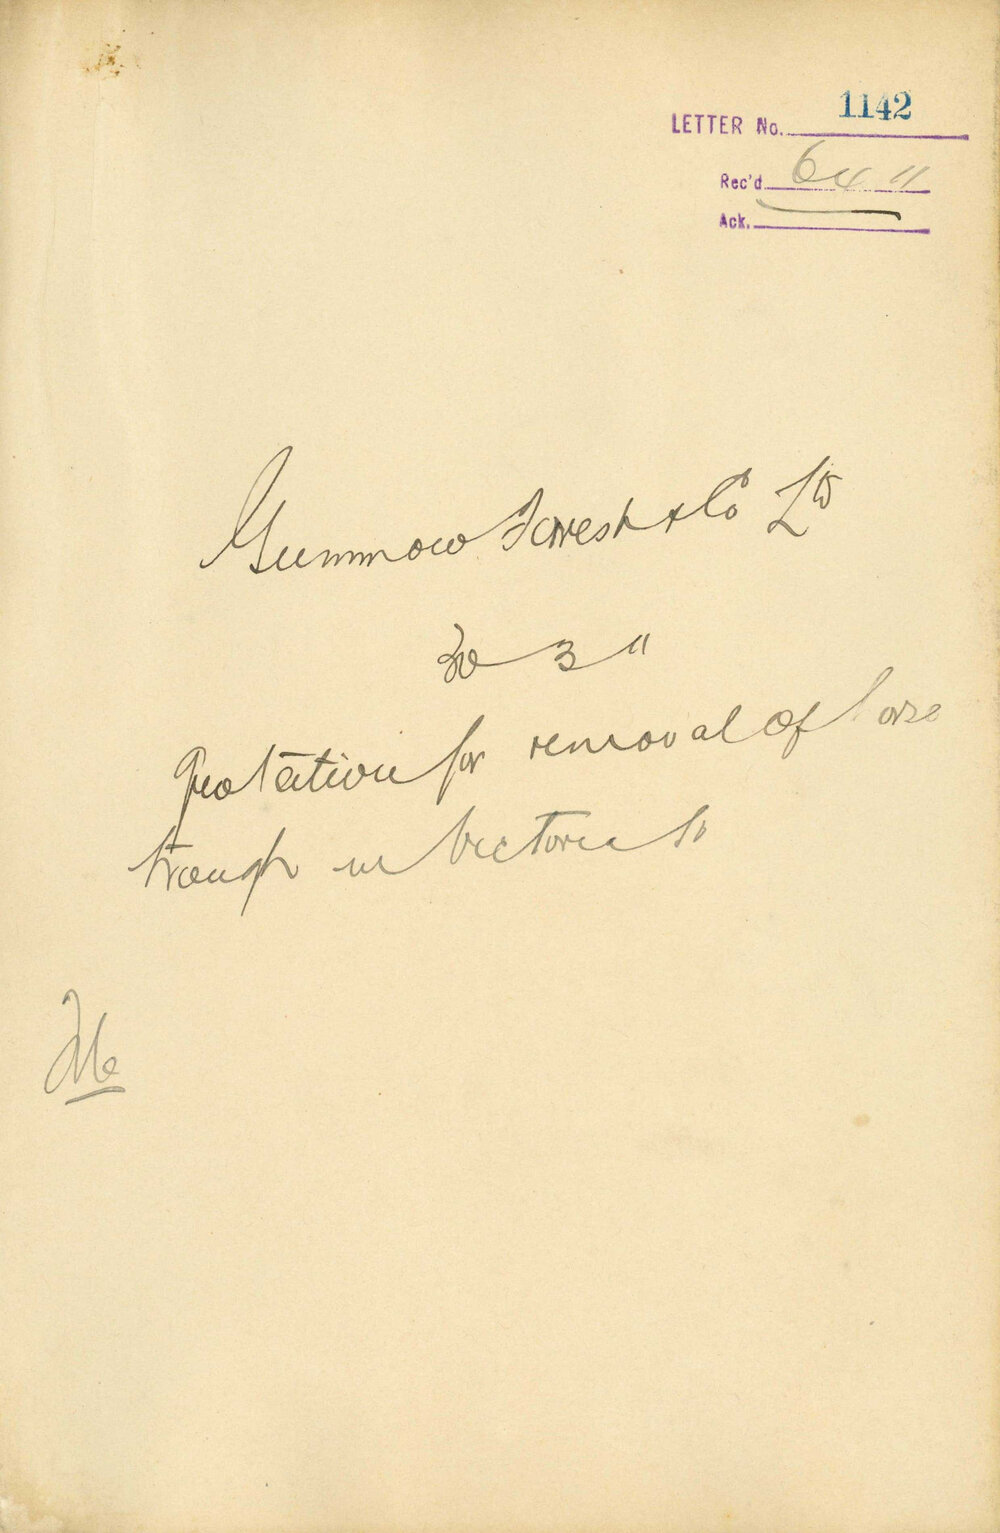 LETTER No. 1142
Rec'd 6 4 11
Ack.
Gummow Forrest & Co Ltd
30 3 11
Quotation for removal of horse
trough in Victoria St
File